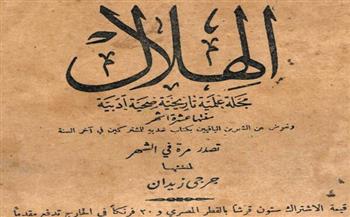 الهلال
مجلة علمية تاريخية صحية أدبية
سنتها عشرة أشهر
وتعوض عن الشهرين الباقيين بكتاب تهديه للمشتركين في آخر السنة
تصدر مرة في الشهر
لمنشئها
جرجي زيدان
قيمة الاشتراك ستون قرشاً بالقطر المصري و ٢٠ فرنكاً في الخارج تدفع مقدماً